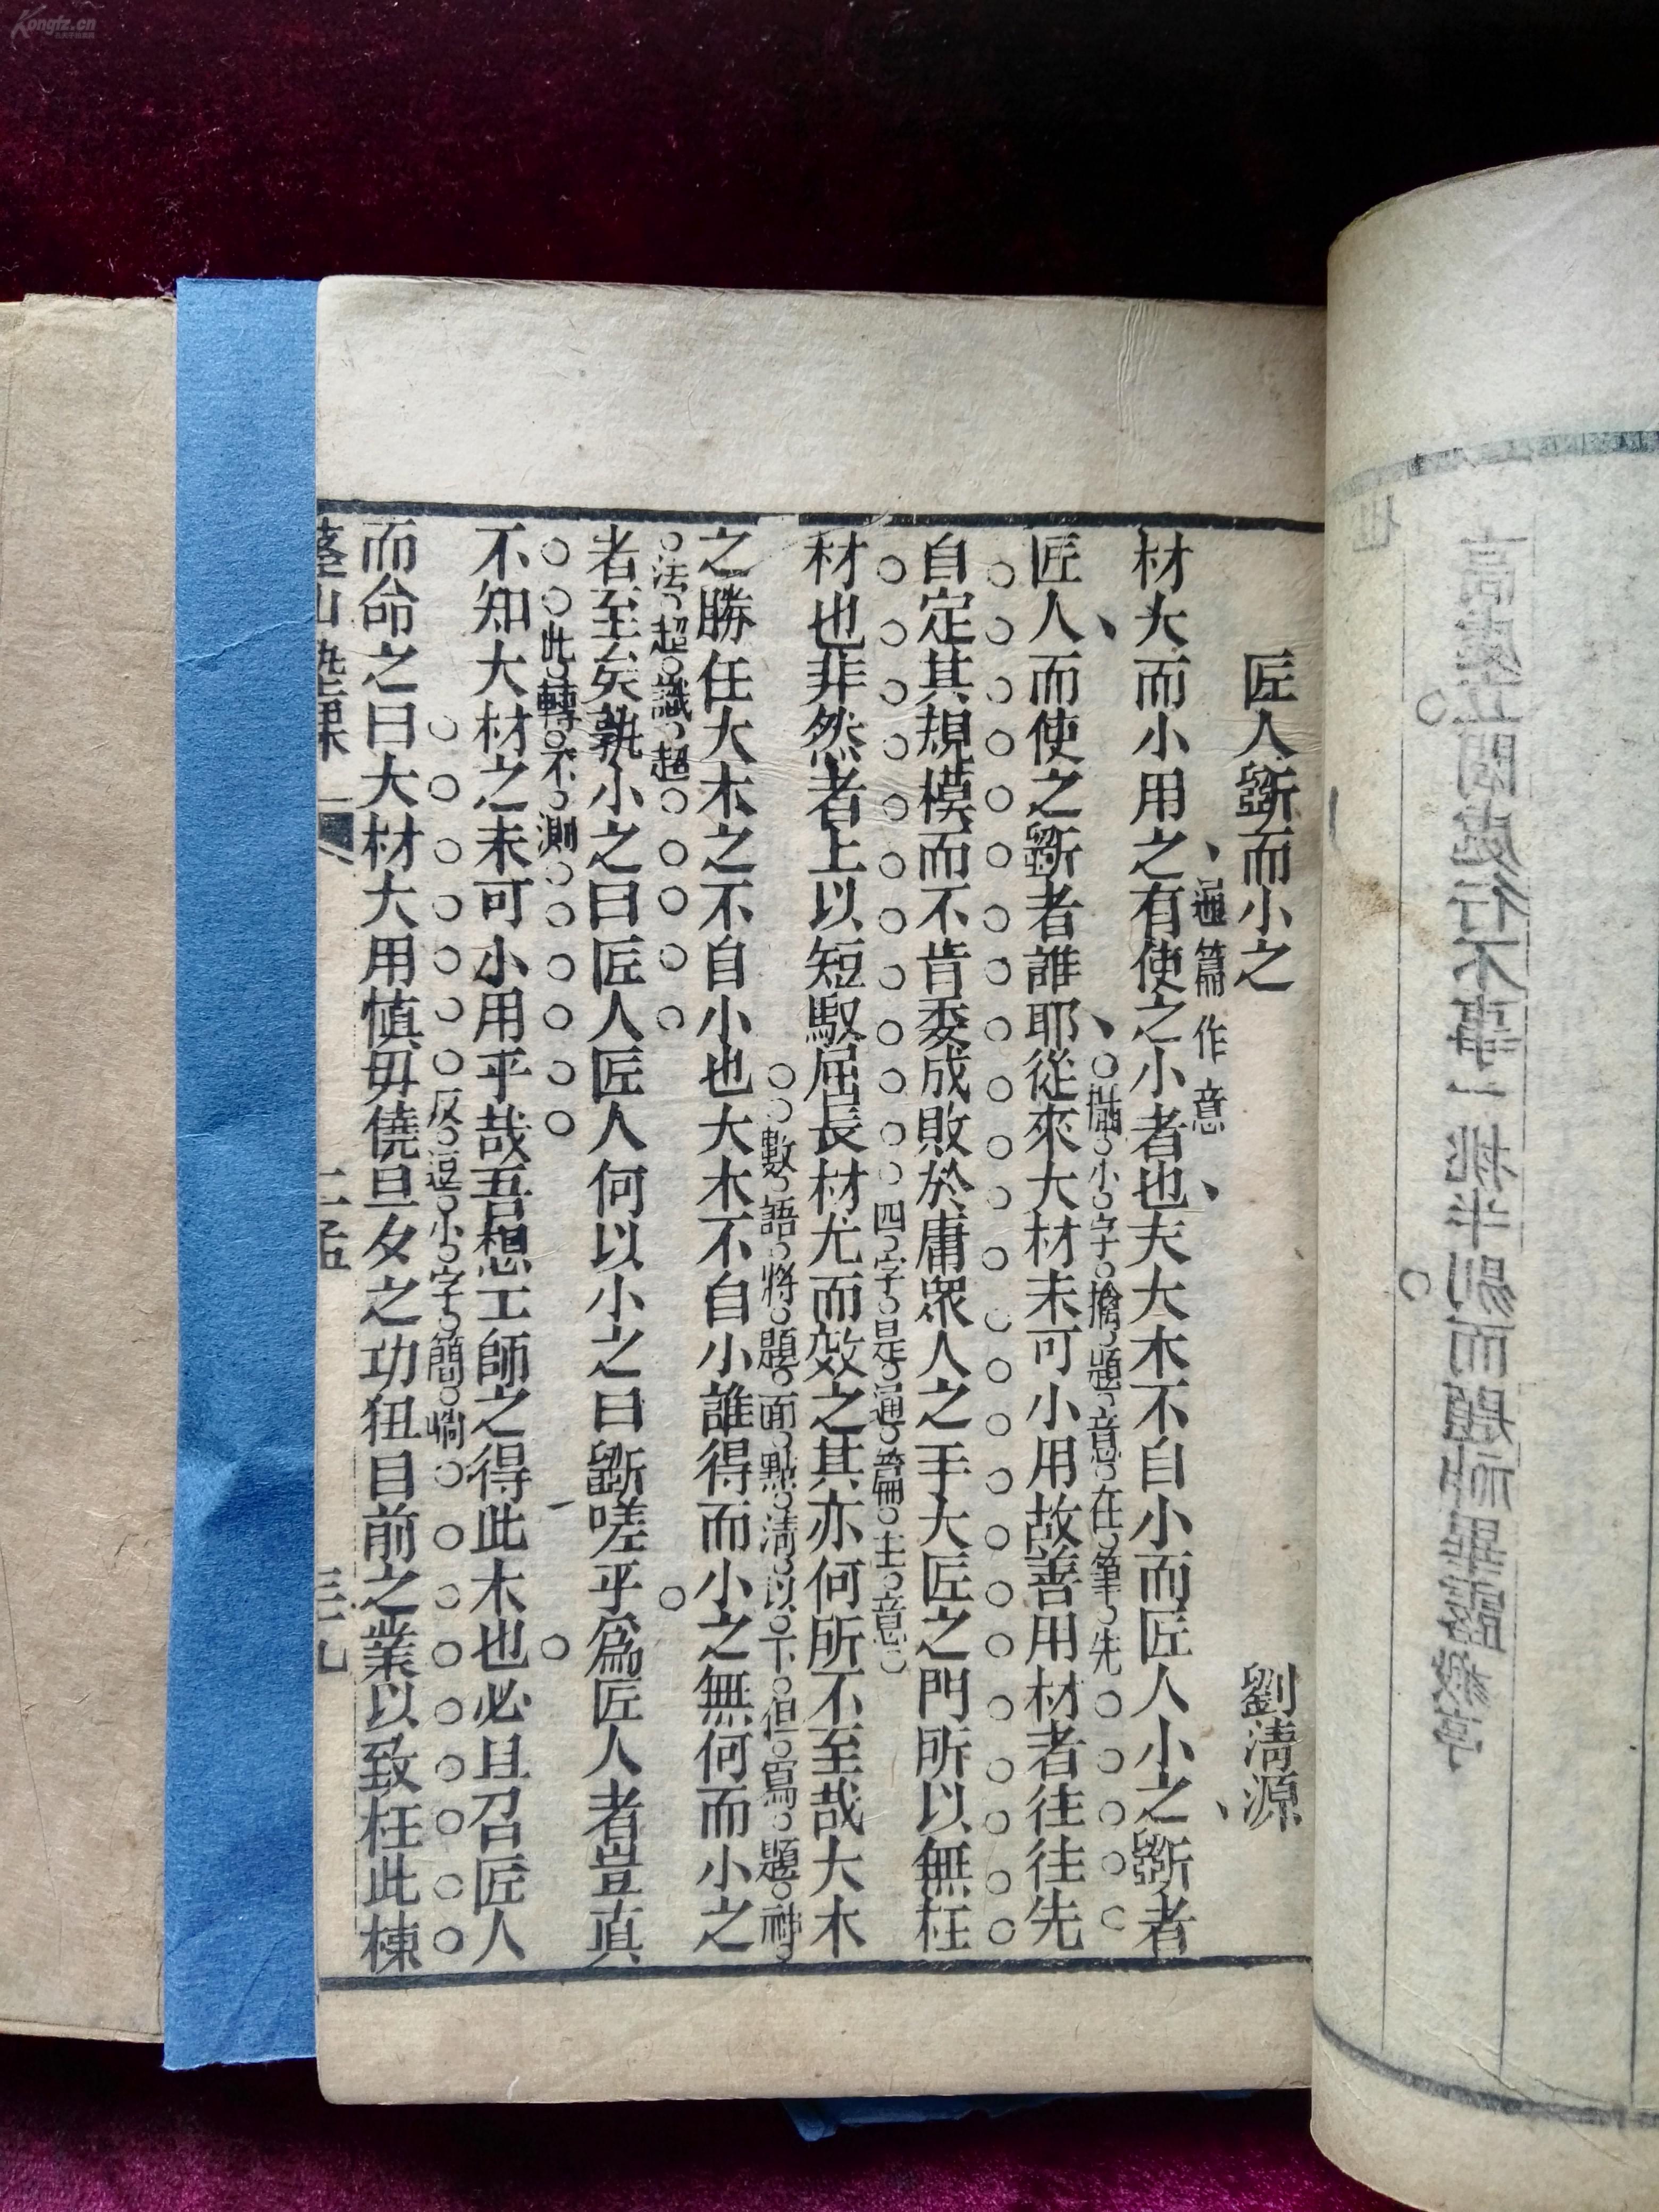 匠人斲而小之 劉清源
通篇作意
材大而小用之有使之小者也夫大木不自小而匠人小之斲者
攝小字擒題意在筆先
匠人而使之斲者誰耶從來大材未可小用故善用材者往往先
自定其規模而不肯委成敗於庸眾人之手大匠之門所以無枉
四字是通篇主意
材也非然者上以短馭屈長材尤而效之其亦何所不至哉大木
數語將題面點清以下但寫題神
之勝任大木之不自小也大木不自小誰得而小之無何而小之
法超識超
者至矣孰小之曰匠人匠人何以小之曰斲嗟乎為匠人者豈真
此轉不測
不知大材之未可小用乎哉吾想工師之得此木也必且召匠人
反逗小字簡峭
而命之曰大材大用慎毋僥旦夕之功狃目前之業以致枉此棟
山 課 二孟 三九
Kongfz.cn